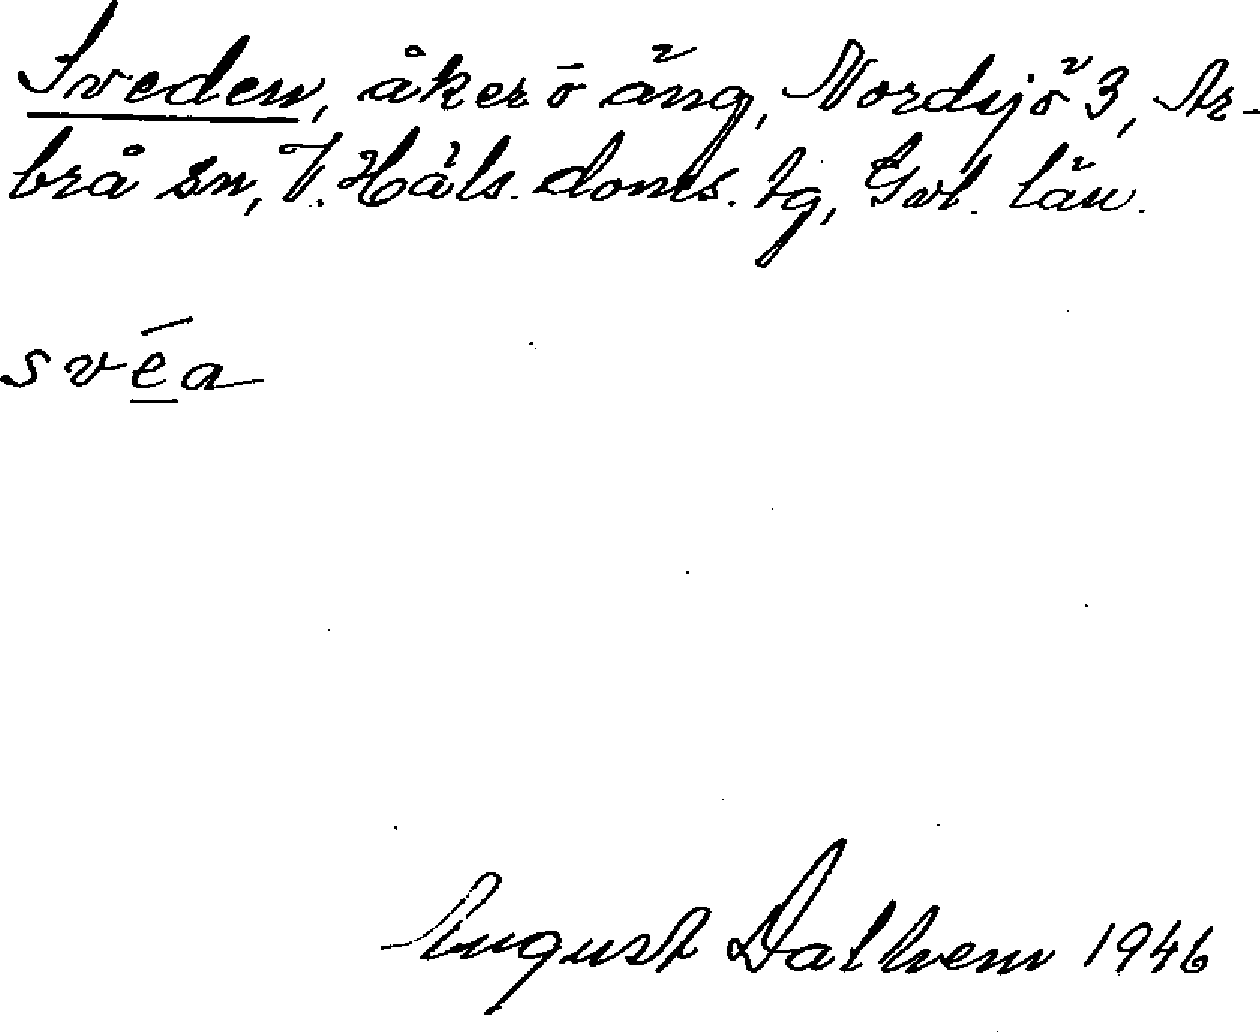 Sveden, åker ō äng, Nordsjö 3, Ar-
brå sn, V. Häls. doms. tg, Gvl. län.
svéa
August Dalhem 1946